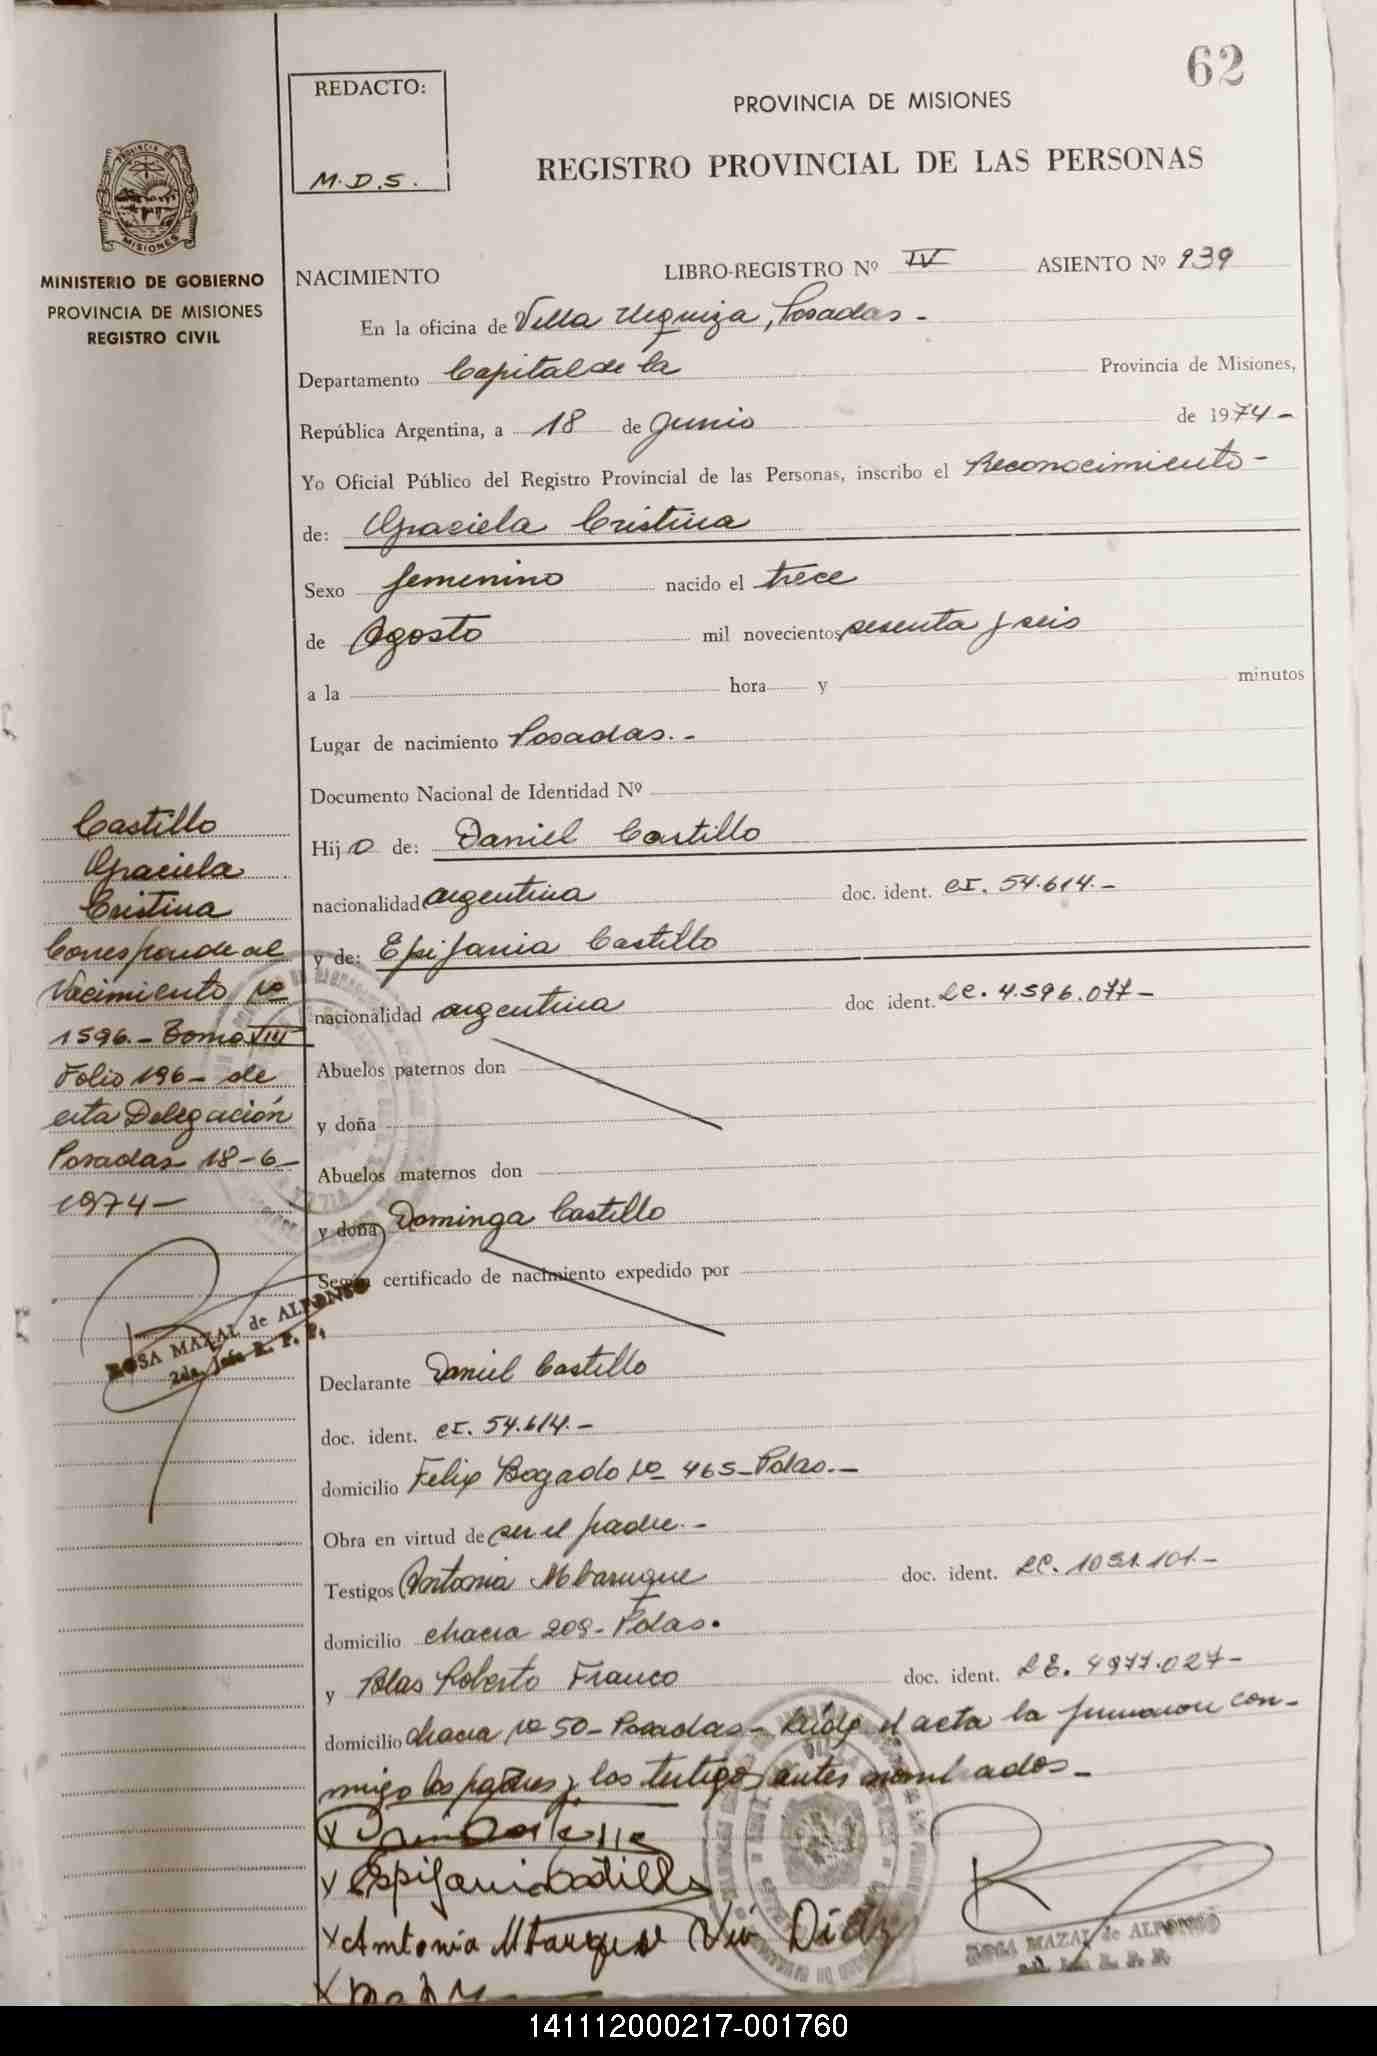 62
REDACTO:
M.D.S.
PROVINCIA DE MISIONES
REGISTRO PROVINCIAL DE LAS PERSONAS
PROVINCIA DE
MISIONES
MINISTERIO DE GOBIERNO
PROVINCIA DE MISIONES
REGISTRO CIVIL
NACIMIENTO LIBRO-REGISTRO Nº IV ASIENTO Nº 939
En la oficina de Villa Urquiza, Posadas.-
Departamento Capital de la Provincia de Misiones,
República Argentina, a 18 de Junio de 1974-
Yo Oficial Público del Registro Provincial de las Personas, inscribo el Reconocimiento-
de: Graciela Cristina
Sexo femenino nacido el trece
de Agosto mil novecientos sesenta y seis
a la hora y minutos
Lugar de nacimiento Posadas.-
Documento Nacional de Identidad Nº
Hijo de: Daniel Castillo
nacionalidad argentina doc. ident. CI. 54.614.-
y de: Epifania Castillo
nacionalidad argentina doc ident. LC. 4.596.077-
Abuelos paternos don
y doña
Abuelos maternos don
y doña Dominga Castillo
Según certificado de nacimiento expedido por
Declarante Daniel Castillo
doc. ident. CI. 54.614.-
domicilio Felix Bogado Nº 465-Pdas.-
Obra en virtud de ser el padre.-
Testigos Antonia doc. ident. LC.
domicilio chacra 209-Pdas.
y Blas Roberto Franco doc. ident. LE. 4977.027-
domicilio chacra Nº 50-Posadas- Leida el acta la firmaron con-
migo los padres y los testigos antes nombrados-
Castillo
Graciela
Cristina
Corresponde al
Nacimiento Nº
1596.- Tomo VIII
Folio 196- de
esta Delegación
Posadas 18-6-
1974-
ROSA MAZAL de ALFONSO
2da. Jefe R. P. P.
X
X Epifania Castillo
X Antonia
X
ROSA MAZAL de ALFONSO
141112000217-001760